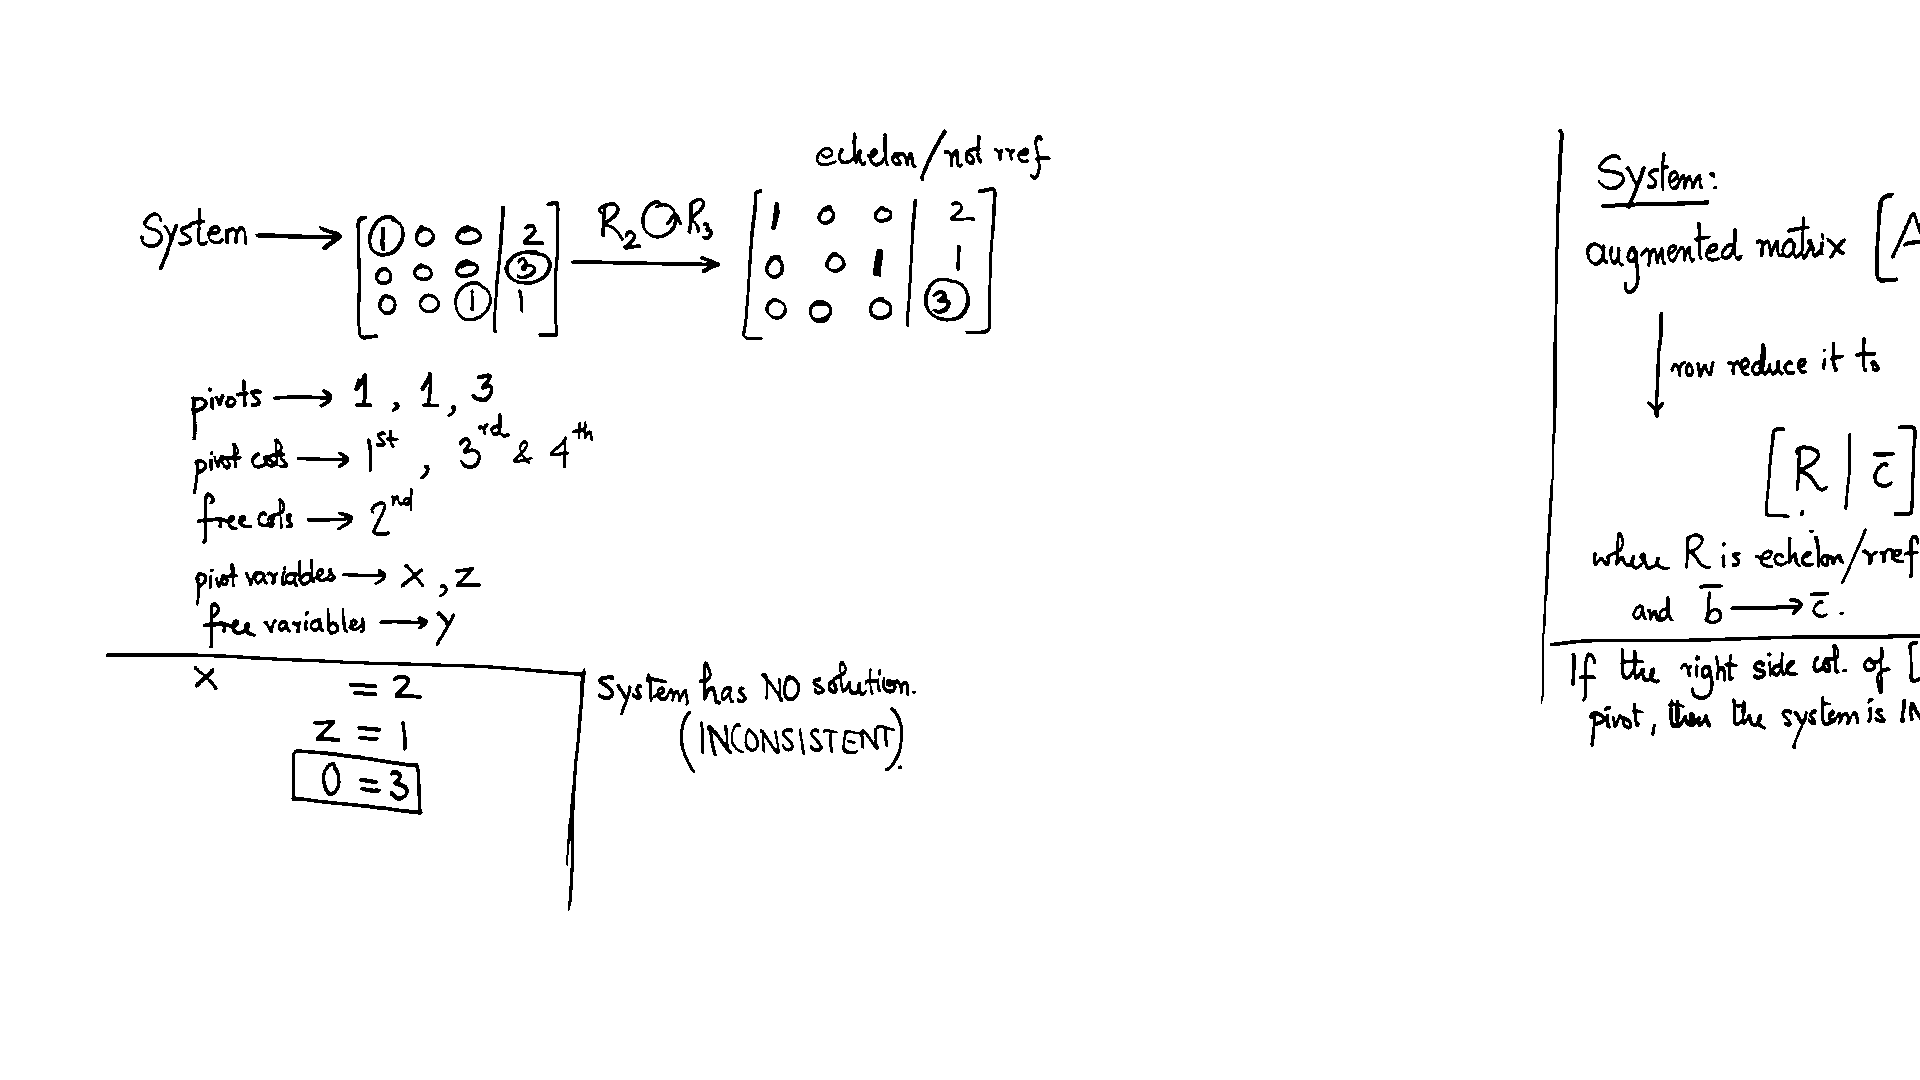 echelon/not rref
System → [① 0 0 | 2] R₂ ↺ R₃ → [1 0 0 | 2]
[0 0 0 | ③] [0 0 1 | 1]
[0 0 ① | 1] [0 0 0 | ③]
pivots → 1, 1, 3
pivot cols → 1st, 3rd & 4th
free cols → 2nd
pivot variables → x, z
free variables → y
x = 2
z = 1
0 = 3
System has NO solution.
(INCONSISTENT).
System:
augmented matrix [A
↓ row reduce it to
[R | c̄]
where R is echelon/rref
and b̄ → c̄.
If the right side col. of [
pivot, then the system is IN